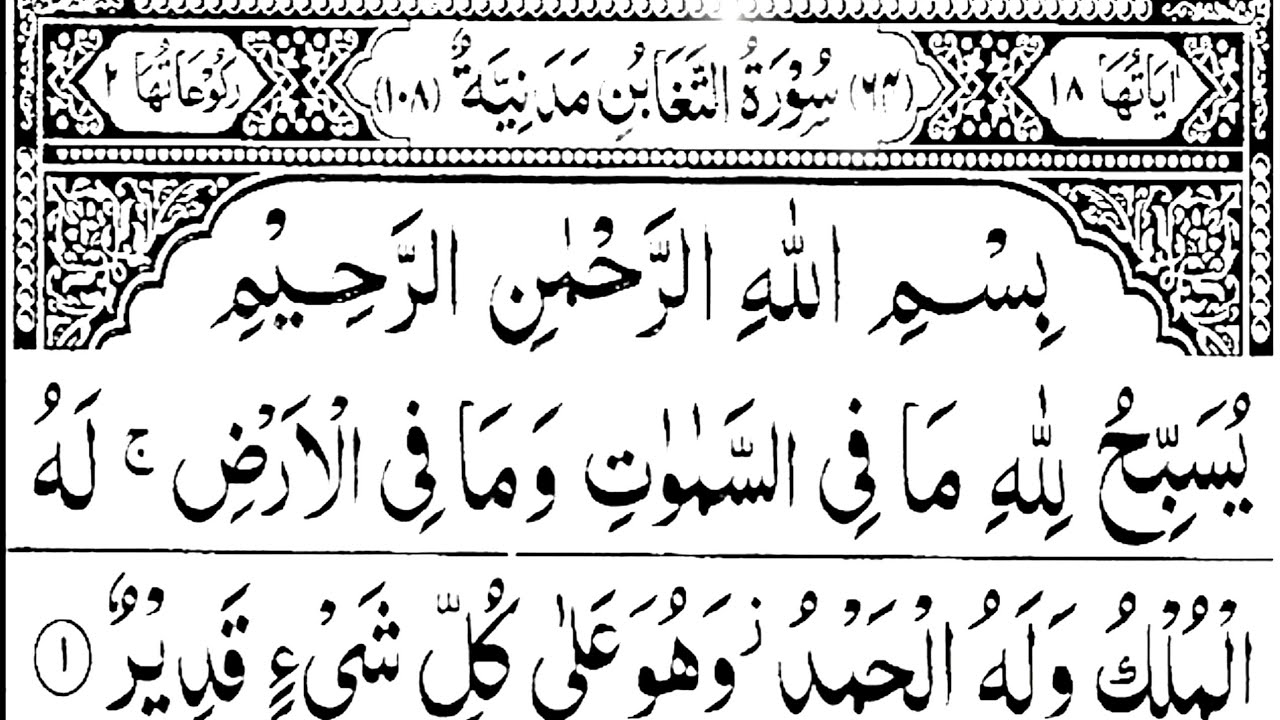 اٰيَاتُهَا ١٨ (٦٤) سُوْرَةُ التَّغَابُنِ مَدَنِيَّةٌ (١٠٨) رُكُوْعَاتُهَا ٢
بِسْمِ اللّٰهِ الرَّحْمٰنِ الرَّحِيْمِ
يُسَبِّحُ لِلّٰهِ مَا فِى السَّمٰوٰتِ وَمَا فِى الْاَرْضِ ۚ لَهُ
الْمُلْكُ وَلَهُ الْحَمْدُ ز وَهُوَ عَلٰى كُلِّ شَىْءٍ قَدِيْرٌ ١